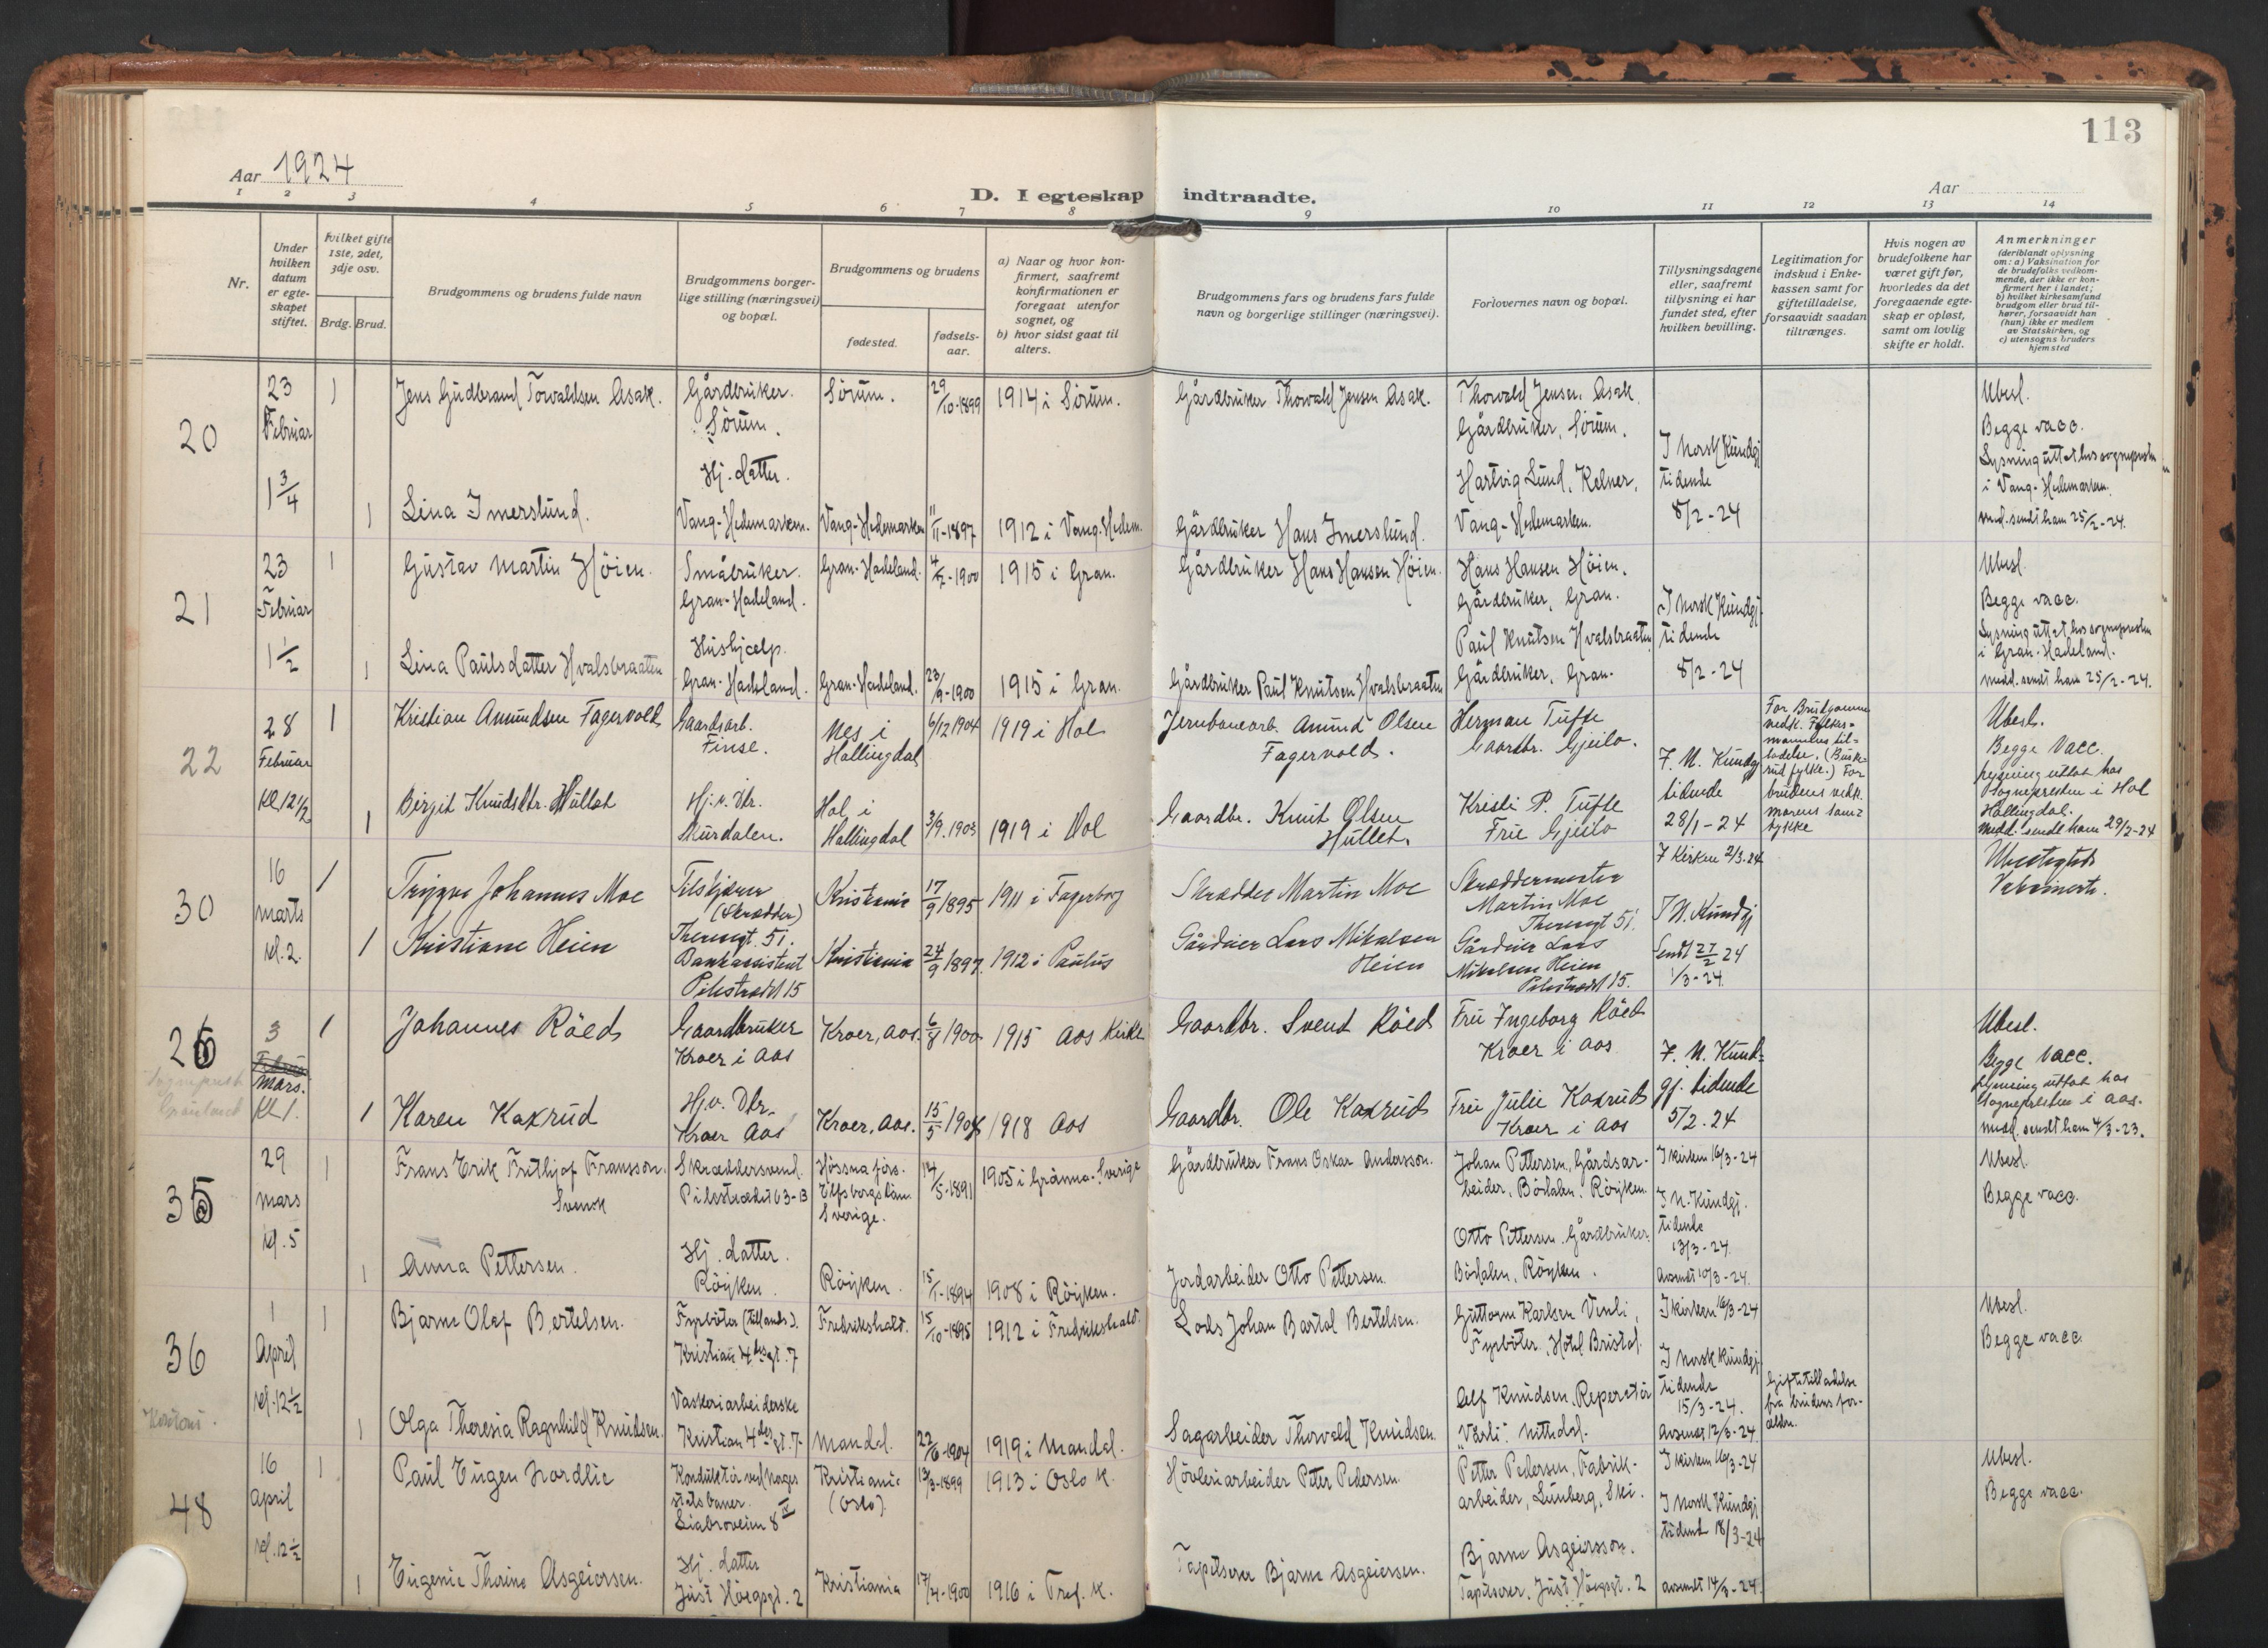 113
Aar 1924
Aar
D. I egteskap indtraadte.
1 2 3 4 5 6 7 8 9 10 11 12 13 14
Nr.
Under hvilken datum er egteskapet stiftet.
hvilket gifte 1ste, 2det, 3dje osv.
Brdg. Brud.
Brudgommens og brudens fulde navn
Brudgommens borgerlige stilling (næringsvei) og bopæl.
Brudgommens og brudens
fødested.
fødselsaar.
a) Naar og hvor konfirmert, saafremt konfirmationen er foregaat utenfor sognet, og
b) hvor sidst gaat til alters.
Brudgommens fars og brudens fars fulde navn og borgerlige stillinger (næringsvei).
Forlovernes navn og bopæl.
Tillysningsdagene eller, saafremt tillysning ei har fundet sted, efter hvilken bevilling.
Legitimation for indskud i Enkekassen samt for giftetilladelse, forsaavidt saadan tiltrænges.
Hvis nogen av brudefolkene har været gift før, hvorledes da det foregaaende egteskap er opløst, samt om lovlig skifte er holdt.
Anmerkninger (deriblandt oplysning om: a) Vaksination for de brudefolks vedkommende, der ikke er konfirmert her i landet; b) hvilket kirkesamfund brudgom eller brud tilhører, forsaavidt han (hun) ikke er medlem av Statskirken, og c) utensogns bruders hjemsted
20
23 Februar 1 3/4
1 Jens Gudbrand Torvaldsen Asak. Gårdbruker. Sörum. Sörum. 29/10-1899 1914 i Sörum. Gårdbruker Thorvald Jensen Asak. Thorvald Jensen Asak. Gårdbruker, Sörum.
1 Lina Imerslund. Hj. datter. Vang-Hedemarken. Vang-Hedemarken 11/11-1897 1912 i Vang. Hedem. Gårdbruker Hans Imerslund. Hartvig Lund, Kelner, Vang-Hedemarken.
I Norsk Kundgj tidende 8/2-24
Ubesl. Begge vacc. Lysning uttat hos sognepresten i Vang-Hedemarken. Med. sendt ham 25/2-24.
21
23 Februar 1 1/2
1 Gustav Martin Höien. Småbruker. Gran-Hadeland. Gran-Hadeland. 1900 1915 i Gran. Gårdbruker Hans Hansen Höien. Hans Hansen Höien. Gårdbruker, Gran.
1 Lina Paulsdatter Hvalsbraaten Hushjælp. Gran-Hadeland. Gran-Hadeland. 23/9-1900 1915 i Gran. Gårdbruker Paul Knutsen Hvalsbraaten Paul Knutsen Hvalsbraaten Gårdbruker, Gran.
I Norsk Kundgj. tidende 8/2-24
Ubesl. Begge vacc. Lysning uttat hos sognepresten i Gran-Hadeland. Medd. sendt ham 25/2-24.
22
28 Februar Kl 12 1/2
1 Kristian Amundsen Fagervold Gaardsarb. Finse. Nes i Hallingdal 6/12 1904 1919 i Hol Jernbanearb. Amund Olsen Fagervold. Herman Tufte Gaardbr. Gjeilo.
1 Birgit Knudsdtr. Hullet Hj.v. Dtr. Murdalen. Hol i Hallingdal 3/9.1903 1919 i Hol Gaardbr. Knut Olsen Hullet. Kristi P. Tufte Frue Gjeilo
I N. Kundgj tidende 28/1-24
For Brudgommens vedk. Fylkesmannens tilladelse. (Buskerud fylke.) For brudens vedk. morens samtykke
Ubesl. Begge Vacc. Lysning uttat hos Sognepresten i Hol Hallingdal. Medd. sendt ham 29/2-24
30
16 Marts kl. 2.
1 Trygve Johannes Moe Tilskjærer (Skrædder) Theresgt. 51. Kristiania 17/9 1895 1911 i Fagerborg Skrædder Martin Moe Skræddermester Martin Moe Theresgt 51.
1 Kristiane Heien Bankassistent Pilestrædet 15 Kristiania 24/9 1897. 1912 i Paulus Gårdeier Lars Mikalsen Heien Gårdeier Lars Mikalsen Heien Pilestrædet 15.
I Kirken 2/3-24 I N. Kundgj Sendt 27/2 24 1/3-24.
Ubeslegtede Vaksinerte.
26
3 Mars. Kl 1.
1 Johannes Röed Gaardbruker Kroer i Aas Kroer, Aas. 6/8 1900 1915 Aas Kirke Gaardbr. Svend Röed Frue Ingeborg Röed Kroer i Aas
1 Karen Kaxrud Hj.v. Dtr. Kroer Aas Kroer, Aas. 15/5 1904 1918 Aas Gaardbr. Ole Kaxrud Frue Julie Kaxrud Kroer i Aas
I. N. Kundgj. tidende 5/2.24
Ubesl. Begge Vacc. Lysning uttat hos Sognepresten i Aas. Med. sendt ham 4/3-23.
35
29 Mars kl. 5
1 Frans Erik Frithjof Fransson. Svensk Skræddersvend. Pilestrædet 63-B Hössna förs. Elfsborgs län Sverige. 14/5-1891 1905 i Gränna. Sverige Gårdbruker Frans Oskar Andersson. Johan Pettersen, Gårdsarbeider, Bödalen, Röyken.
1 Anna Pettersen. Hj. datter. Röyken. Röyken. 15/1-1894 1908 i Röyken. Jordarbeider Otto Pettersen. Otto Pettersen. Gårdbruker. Bödalen, Röyken.
I kirken 16/3-24 I N. Kundgj. tidende 13/3-24. Avsendt 10/3-24.
Ubesl. Begge vacc.
36
1 April kl. 12 1/2
1 Bjarne Olaf Bertelsen. Fyrböter (tillands). Kristian 4des gt. 7 Fredrikshald. 15/10-1895 1912 i Fredrikshald. Lods Johan Bartol Bertelsen. Guttorm Karlsen Venli, Fyrböter, Hotel Bristol.
1 Olga Theresia Ragnhild Knudsen. Vaskeriarbeiderske Kristian 4des gt. 7- Mandal. 22/6-1904 1919 i Mandal. Sagarbeider Thorvald Knudsen. Alf Knudsen. Reperatör Nittedal.
I kirken 16/3-24 I Norsk Kundgj. tidende 15/3-24. Avsendt 12/3-24.
Giftetilladelse fra brudens forældre.
Ubesl. Begge vacc.
48
16 April kl. 12 1/2
1 Paul Eugen Nordlie Konduktör ved Norges statsbaner. Liabroveien 8 Kristiania (Oslo) 13/3-1899 1913 i Oslo k. Hövleriarbeider Petter Pedersen. Petter Pedersen, Fabrikarbeider, Lunberg, Ski.
1 Eugenie Thorine Asgeirsen. Hj. datter Just Höegsgt. 2 Kristiania 17/4-1900 1916 i Tref. k. Tapetserer Bjarne Asgeirsen. Bjarne Asgeirsson. Tapetserer, Just Höegsgt. 2
I kirken 16/3-24 I Norsk Kundgj tidend 18/3-24 Avsendt 14/3-24.
Ubesl. Begge vacc.